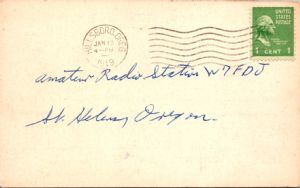 HILLSBORO, OREG.
JAN 13
4 - PM
1949
UNITED STATES
POSTAGE
1 CENT 1
Amateur Radio Station W7FDJ
St. Helens, Oregon.